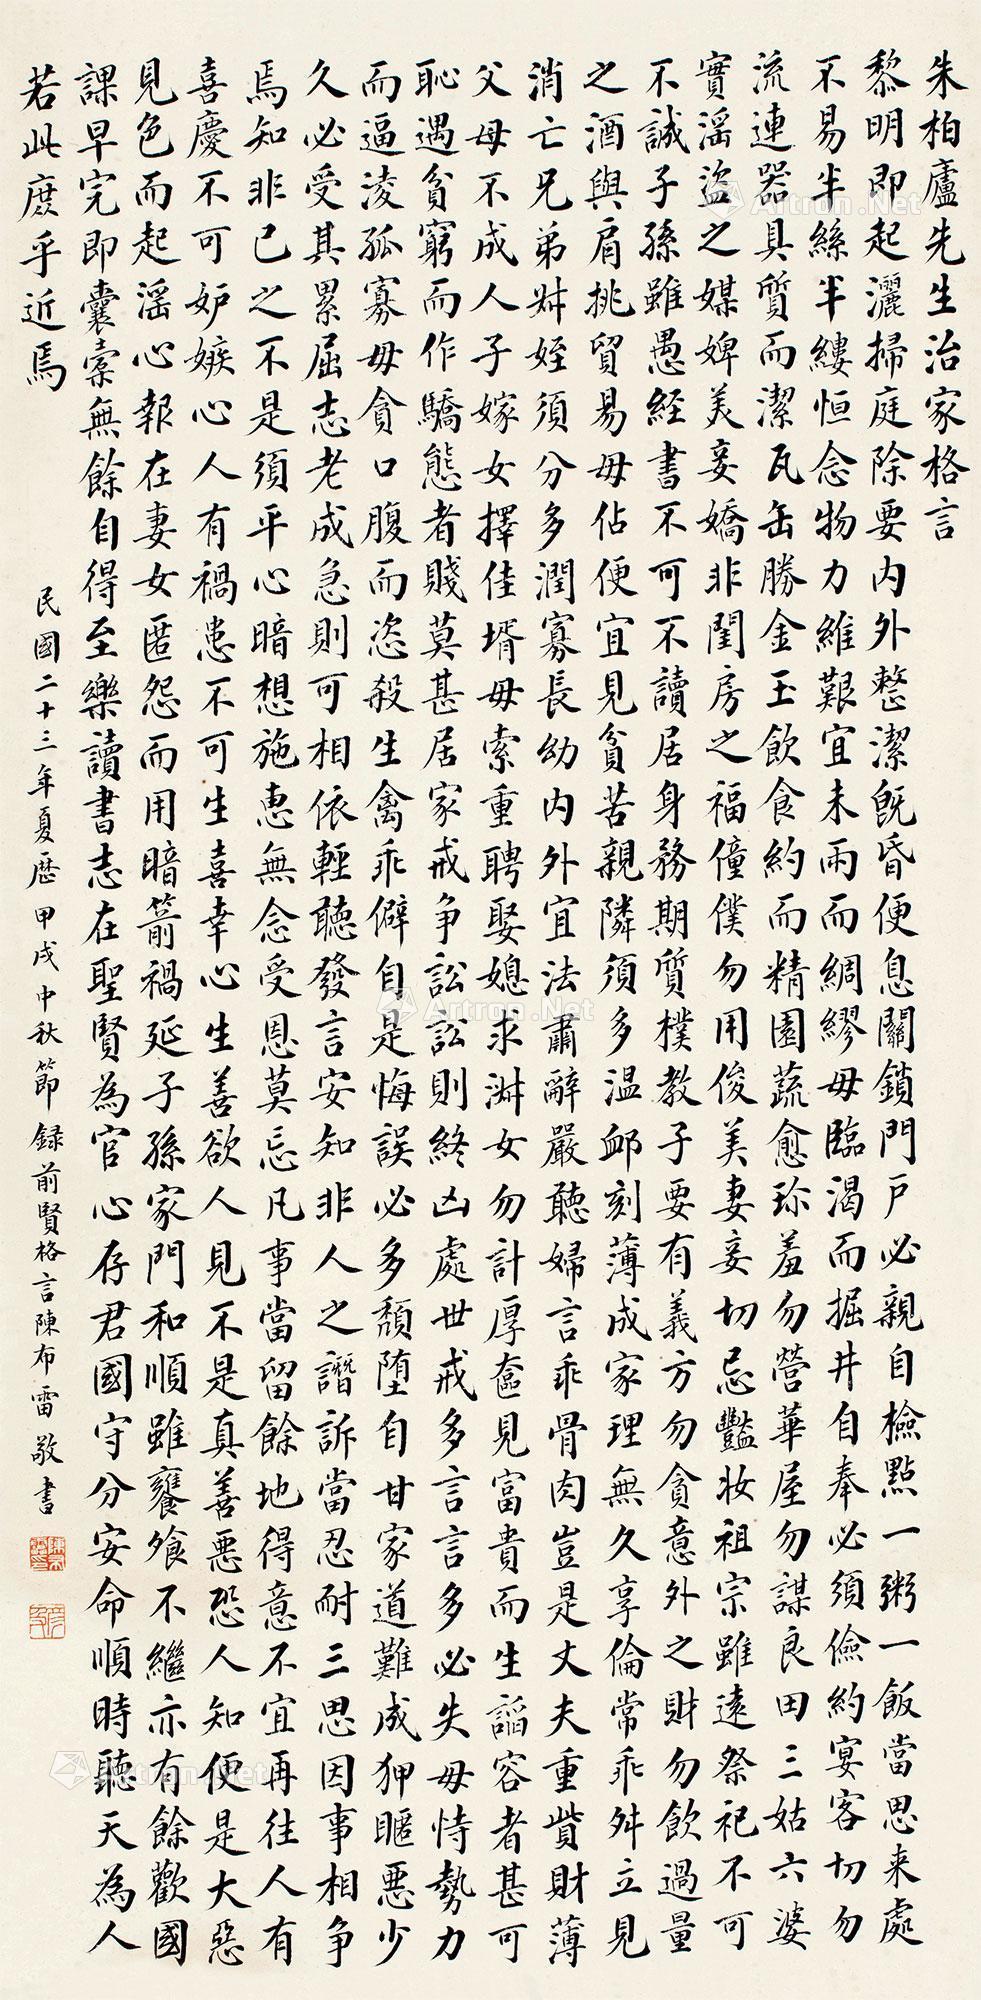 朱柏廬先生治家格言
黎明即起灑掃庭除要内外整潔既昏便息關鎖門戸必親自檢點一粥一飯當思来處
不易半絲半縷恒念物力維艱宜未雨而綢繆毋臨渴而掘井自奉必須儉約宴客切勿
流連器具質而潔瓦缶勝金玉飲食約而精園蔬愈珍羞勿營華屋勿謀良田三姑六婆
實滛盜之媒婢美妾嬌非閨房之福僮僕勿用俊美妻妾切忌豔妝祖宗雖遠祭祀不可
不誠子孫雖愚経書不可不讀居身務期質樸教子要有義方勿貪意外之財勿飲過量
之酒與肩挑貿易毋佔便宜見貧苦親隣須多温邮刻薄成家理無久享倫常乖舛立見
消亡兄弟姪須分多潤寡長幼内外宜法肅辭嚴聽婦言乖骨肉豈是丈夫重貲財薄
父母不成人子嫁女擇佳壻毋索重聘娶媳求淑女勿計厚奩見富貴而生謟容者甚可
恥遇貧窮而作驕態者賤莫甚居家戒争訟訟則終凶處世戒多言言多必失毋恃勢力
而逼淩孤寡毋貪口腹而恣殺生禽乖僻自是悔誤必多頹墮自甘家道難成狎暱惡少
久必受其累屈志老成急則可相依輕聽發言安知非人之譖訴當忍耐三思因事相争
焉知非已之不是須平心暗想施惠無念受恩莫忘凡事當留餘地得意不宜再往人有
喜慶不可妒嫉心人有禍患不可生喜幸心生善欲人見不是真善惡恐人知便是大惡
見色而起滛心報在妻女匿怨而用暗箭禍延子孫家門和順雖饔飧不繼亦有餘歡國
課早完即囊槖無餘自得至樂讀書志在聖賢為官心存君國守分安命順時聽天為人
若此庶乎近焉
民國二十三年夏歷甲戌中秋節録前賢格言陳布雷敬書
Artron.Net
Artron.Net
Artron.Net